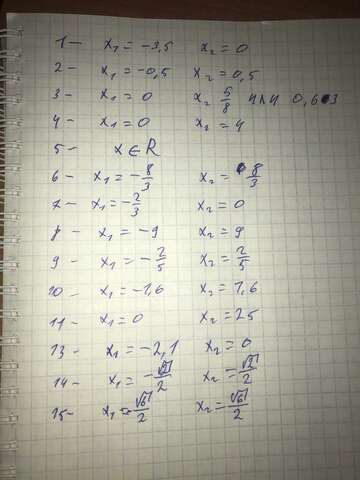 1 — x₁ = -3,5 x₂ = 0
2 — x₁ = -0,5 x₂ = 0,5
3 — x₁ = 0 x₂ 5/8 или 0,6
4 — x₁ = 0 x₂ = 4
5 - x ∈ R
6 - x₁ = -8/3 x₂ = 8/3
7 - x₁ = -2/3 x₂ = 0
8 - x₁ = -9 x₂ = 9
9 - x₁ = -2/5 x₂ = 2/5
10 - x₁ = -1,6 x₂ = 1,6
11 - x₁ = 0 x₂ = 25
13 - x₁ = -2,1 x₂ = 0
14 - x₁ = -√2/2 x₂ = √2/2
15 - x₁ = √6/2 x₂ = √6/2